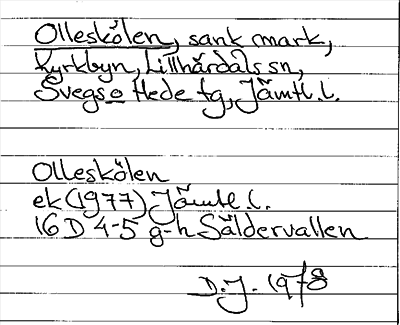 Olleskölen, sank mark,
Kyrkbyn, Lillhärdals sn,
Svegs o Hede tg, Jämtl.l.
Olleskölen
ek (1977) Jämtl.l.
16D 4-5 g-h Säldervallen
D.J. 1978